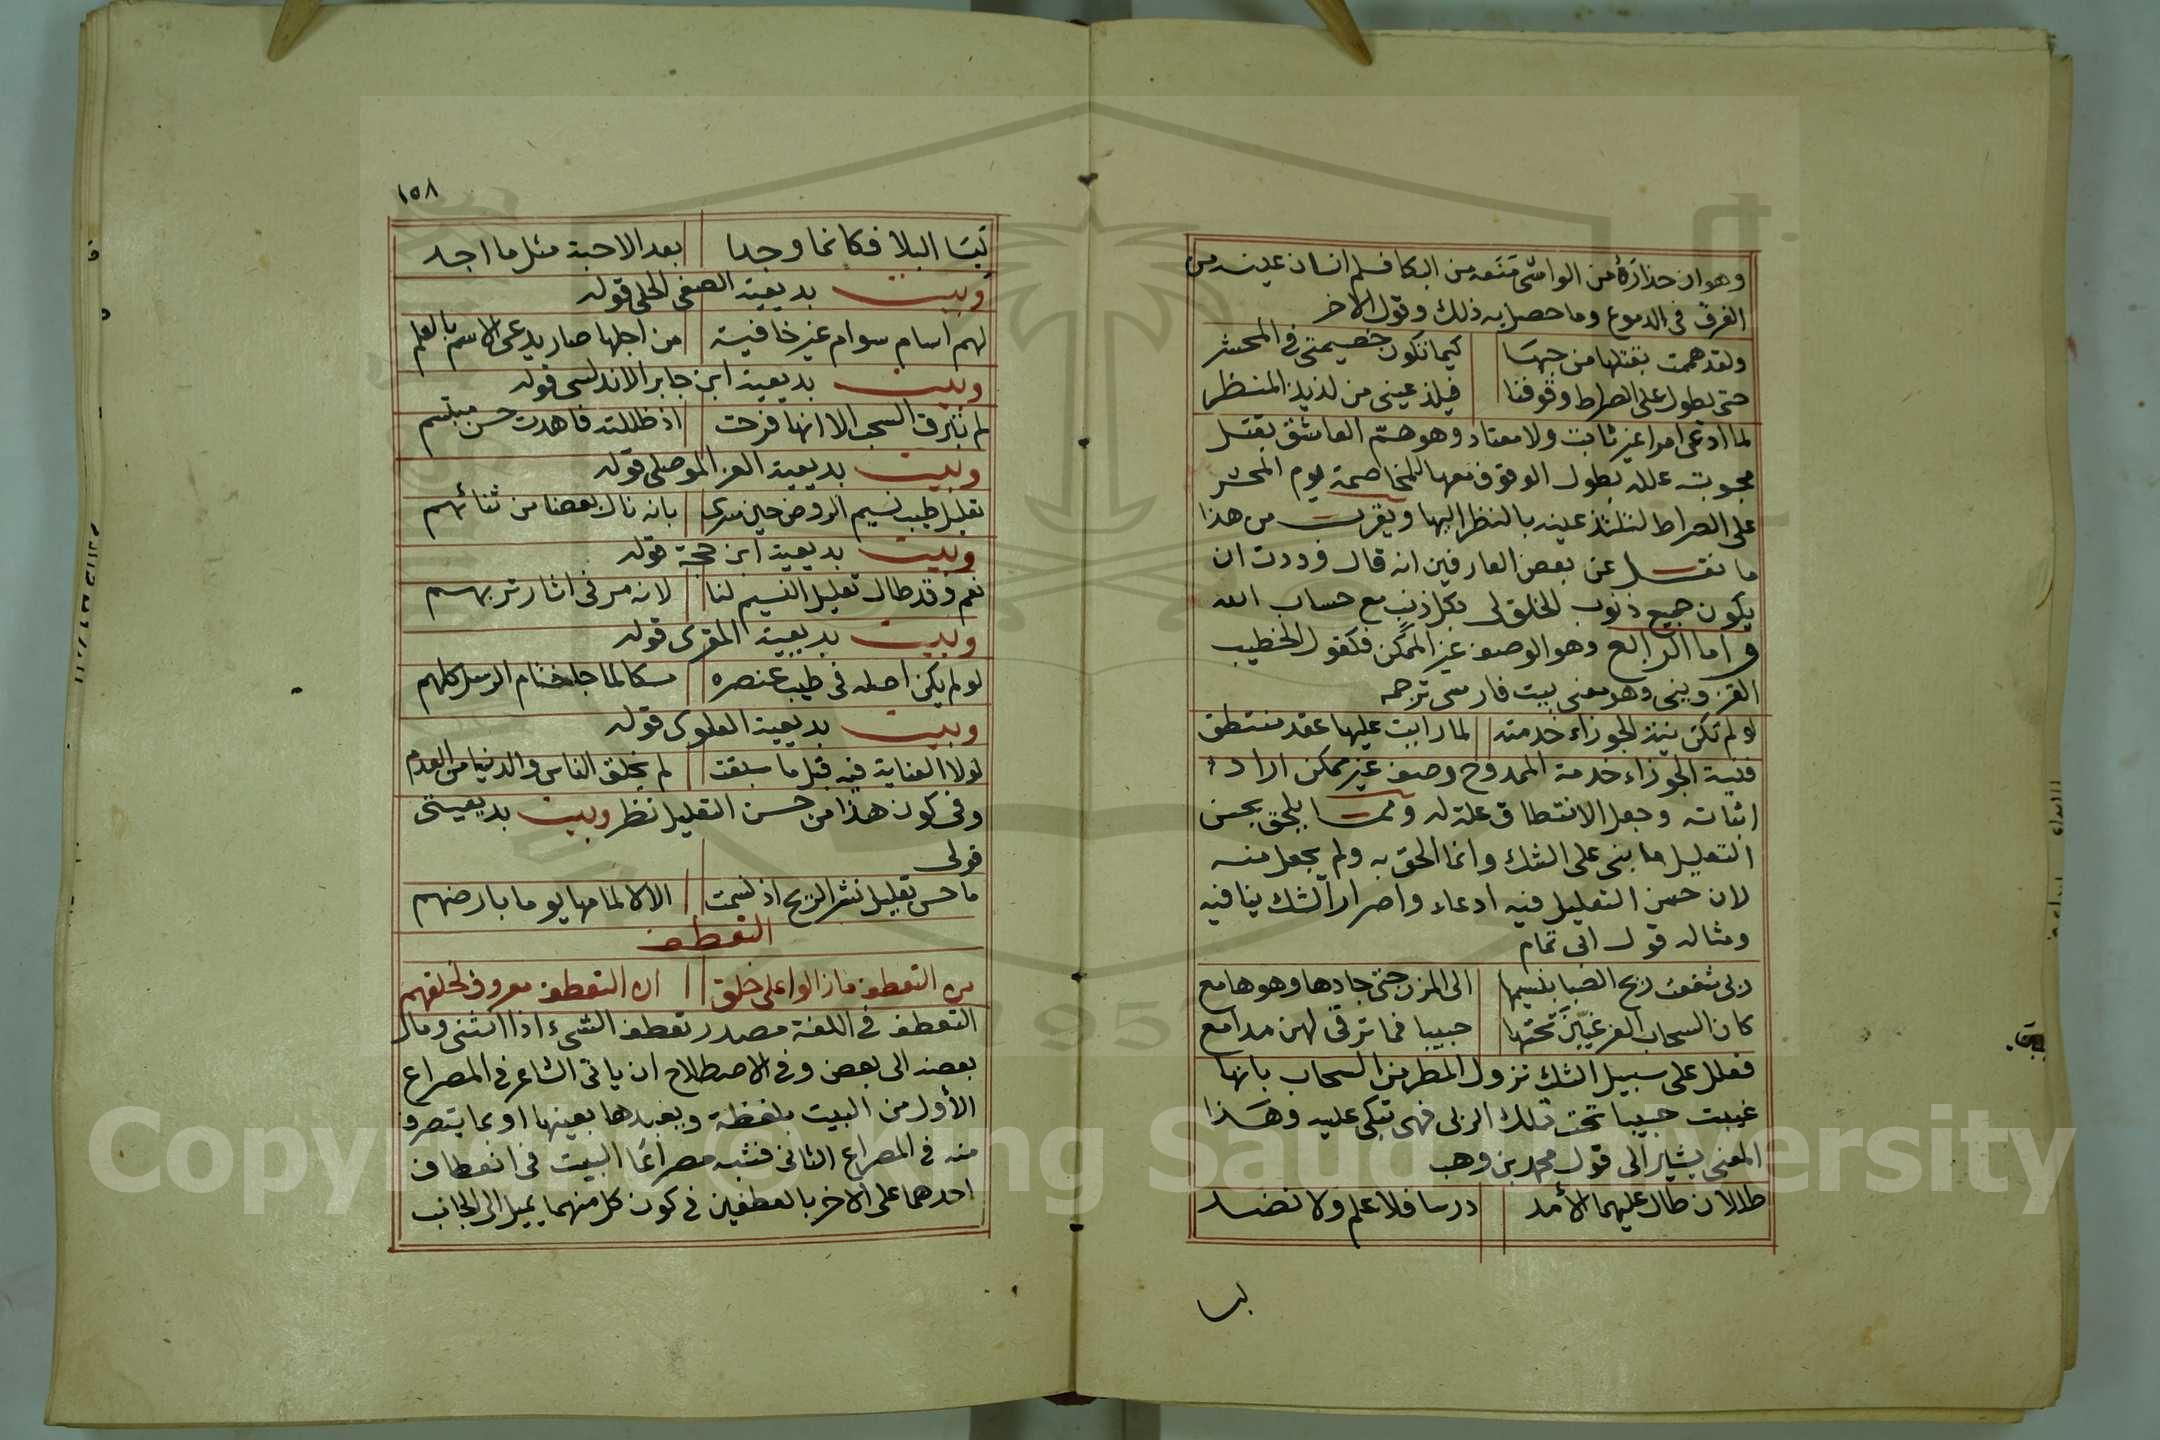 وهو ان حذاره من الواشى منعه من البكا فسلم انسان عينه من
الغرق فى الدموع وما حصل به ذلك وقول الاخر
ولقد هممت بقتلها من حبها كيما تكون خصيمتى فى المحشر
حتى يطول على الصراط وقوفنا فيلذ عينى من لذيذ المنظر
لما ادعى امرا غير ثابت ولا معتاد وهو هم العاشق بقتل
محبوبته علله بطول الوقوف معها للمخاصمة يوم المحشر
على الصراط لتلتذ عينه بالنظر اليها ويقرب من هذا
ما نقل عن بعض العارفين انه قال وددت ان
يكون جميع ذنوب الخلق لى بكل ذنب مع حساب الله
واما الرابع وهو الوصف غير الممكن فكقول الخطيب
القزوينى وهو معنى بيت فارسى ترجمه
لو لم تكن نية الجوزاء خدمته لما رايت عليها عقد منتطق
فنية الجوزاء خدمة الممدوح وصف غير ممكن اراد
اثباته وجعل الانتطاق علة له ومما يلحق بحسن
التعليل ما بنى على الشك وانما الحق به ولم يجعل منه
لان حسن التعليل فيه ادعاء واصرار الشك ينافيه
ومثاله قول ابى تمام
ربى شفعت ريح الصبا بنسيمها الى المزن حتى جادها وهو هامع
كان السحاب الغر غيبن تحتها حبيبا فما ترقى لهن مدامع
فعلل على سبيل الشك نزول المطر من السحاب بانها
غيبت حبيبا تحت تلك الربى فهى تبكى عليه وهذا
المعنى يشير الى قول محمد بن وهب
طللان طال عليهما الأمد درسا فلا علم ولا نضد
لبسا
١٥٨
لبسا البلا فكانما وجدا بعد الاحبة مثل ما اجد
وبيت بديعية الصفى الحلى قوله
لهم اسام سوام غير خافية من اجلها صار يدعى الاسم بالعلم
وبيت بديعية ابن جابر الاندلسى قوله
لم تبرق السحب الا انها فرحت اذ ظللته فاهدت حسن مبتسم
وبيت بديعية العز الموصلى قوله
تعليل طيب نسيم الروض حين سرى بانه نال بعضا من ثنائهم
وبيت بديعية ابن حجة قوله
نعم وقد طال تعليل النسيم لنا لانه مر فى اثار تربهم
وبيت بديعية المقرى قوله
لو لم يكن اصله فى طيب عنصره مسكا لما جا ختام الرسل كلهم
وبيت بديعية العلوى قوله
لولا العناية فيه قبل ما سبقت لم يخلق الناس والدنيا من العدم
وفى كون هذا من حسن التعليل نظر وبيت بديعيتى
قولى
ما حسن تعليل نشر الريح اذ نسمت الا لالمامها يوما بارضهم
التعطف
من التعطف ما زالوا على خلق ان التعطف معروف لخلقهم
التعطف فى اللغة مصدر تعطف الشىء اذا انثنى ومال
بعضه الى بعض وفى الاصطلاح ان ياتى الشاعر فى المصراع
الأول من البيت بلفظة ويعيدها بعينها او بما يتصرف
منه فى المصراع الثانى فشبه مصراعا البيت فى انعطاف
احدهما على الاخر بالعطفين فى كون كل منهما يميل الى الجانب
Copyright © King Saud University